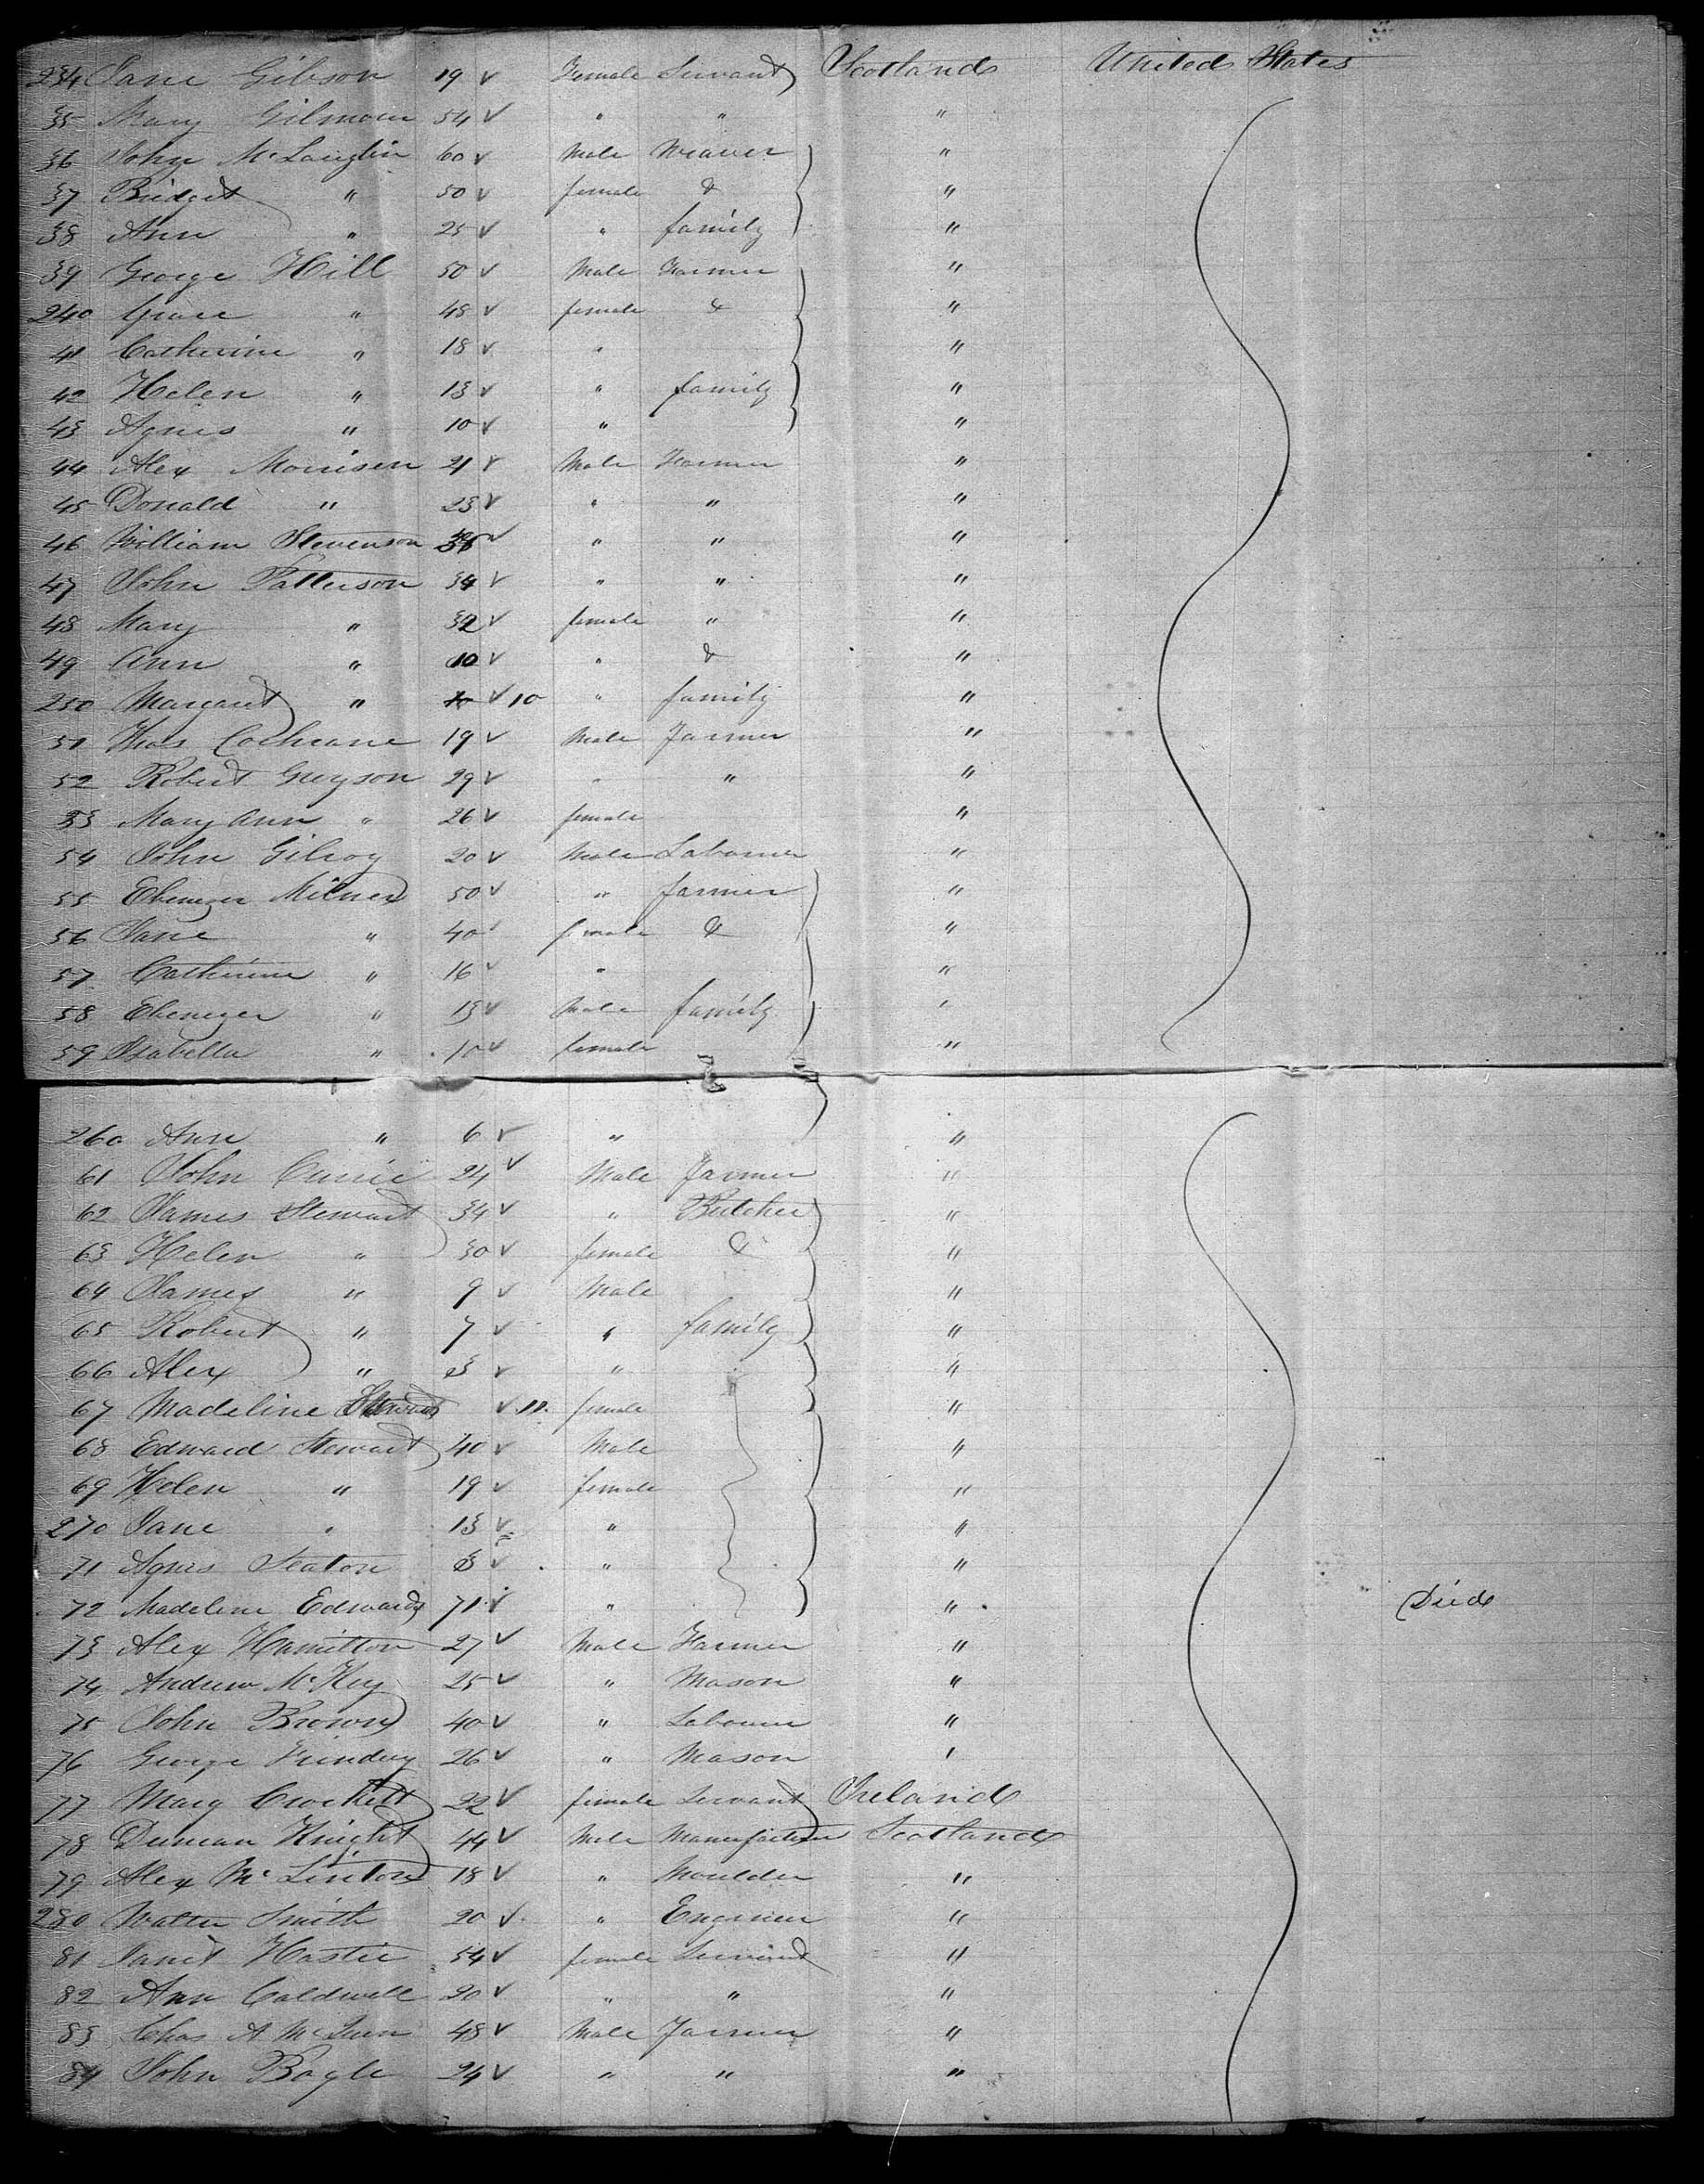 234 Jane Gibson 19 ✓ Female Servant Scotland United States
35 Mary Gilmour 54 ✓ " " "
36 John McLauglin 60 ✓ Male Weaver "
37 Bridget " 50 ✓ female & "
38 Ann " 25 ✓ " family "
39 George Hill 50 ✓ Male Farmer "
240 Grace " 48 ✓ female & "
41 Catherine " 18 ✓ " "
42 Helen " 13 ✓ " family "
43 Agnes " 10 ✓ " "
44 Alex Morrison 21 ✓ Male Farmer "
45 Donald " 23 ✓ " " "
46 William Stevenson ✓ " " "
47 John Patterson 34 ✓ " " "
48 Mary " 32 ✓ female " "
49 Ann " 10 ✓ " & "
250 Margaret " ✓ 10 " family "
51 Thos Cochrane 19 ✓ Male Farmer "
52 Robert Greyson 29 ✓ " " "
53 Mary Ann " 26 ✓ female "
54 John Gilroy 20 ✓ Male Labourer "
55 Ebenezer Milner 50 ✓ " farmer "
56 Jane " 40 ✓ female & "
57 Catherine " 16 ✓ " "
58 Ebenezer " 13 ✓ Male family "
59 Isabella " 10 ✓ female "
260 Ann " 6 ✓ " "
61 John Currie 24 ✓ Male Farmer "
62 James Stewart 34 ✓ " Butcher "
63 Helen " 30 ✓ female & "
64 James " 9 ✓ Male "
65 Robert " 7 ✓ " family "
66 Alex " 3 ✓ " "
67 Madeline ✓ 11 female "
68 Edward Stewart 40 ✓ Male "
69 Helen " 19 ✓ female "
270 Jane " 13 ✓ " "
71 Agnes Seaton 3 ✓ " "
72 Madeline Edwards 71 ✓ " " Died
73 Alex Hamilton 27 ✓ Male Farmer "
74 Andrew McKey 25 ✓ " Mason "
75 John Brown 40 ✓ " Labourer "
76 George 26 ✓ " Mason "
77 Mary Crockett 22 ✓ female Servant Ireland
78 Duncan Knight 44 ✓ Male Manufacturer Scotland
79 Alex McLinton 18 ✓ " Moulder "
280 Walter Smith 20 ✓ " Engineer "
81 Janet Hastie 54 ✓ female Servant "
82 Ann Caldwell 20 ✓ " " "
83 Chas A 48 ✓ Male Farmer "
84 John Bogle 24 ✓ " " "